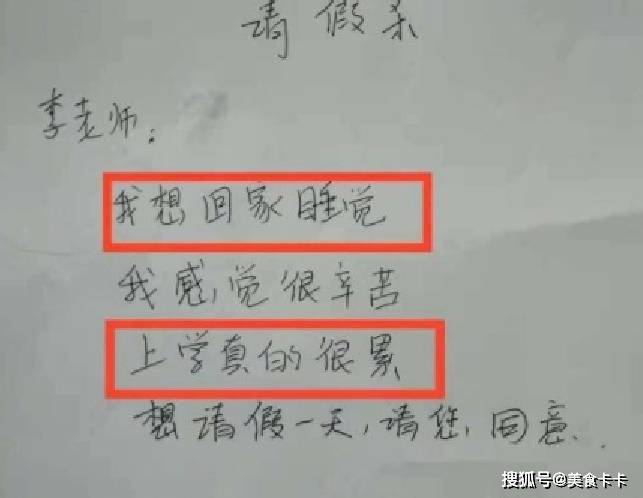 请假条
李老师：
我想回家睡觉
我感觉很辛苦
上学真的很累
想请假一天，请您同意.
搜狐号@美食卡卡